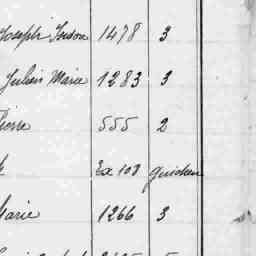 Joseph 1478 3
Julien Marie 1283 3
Pierre 555 2
Ex 108 guichen
Marie 1266 3